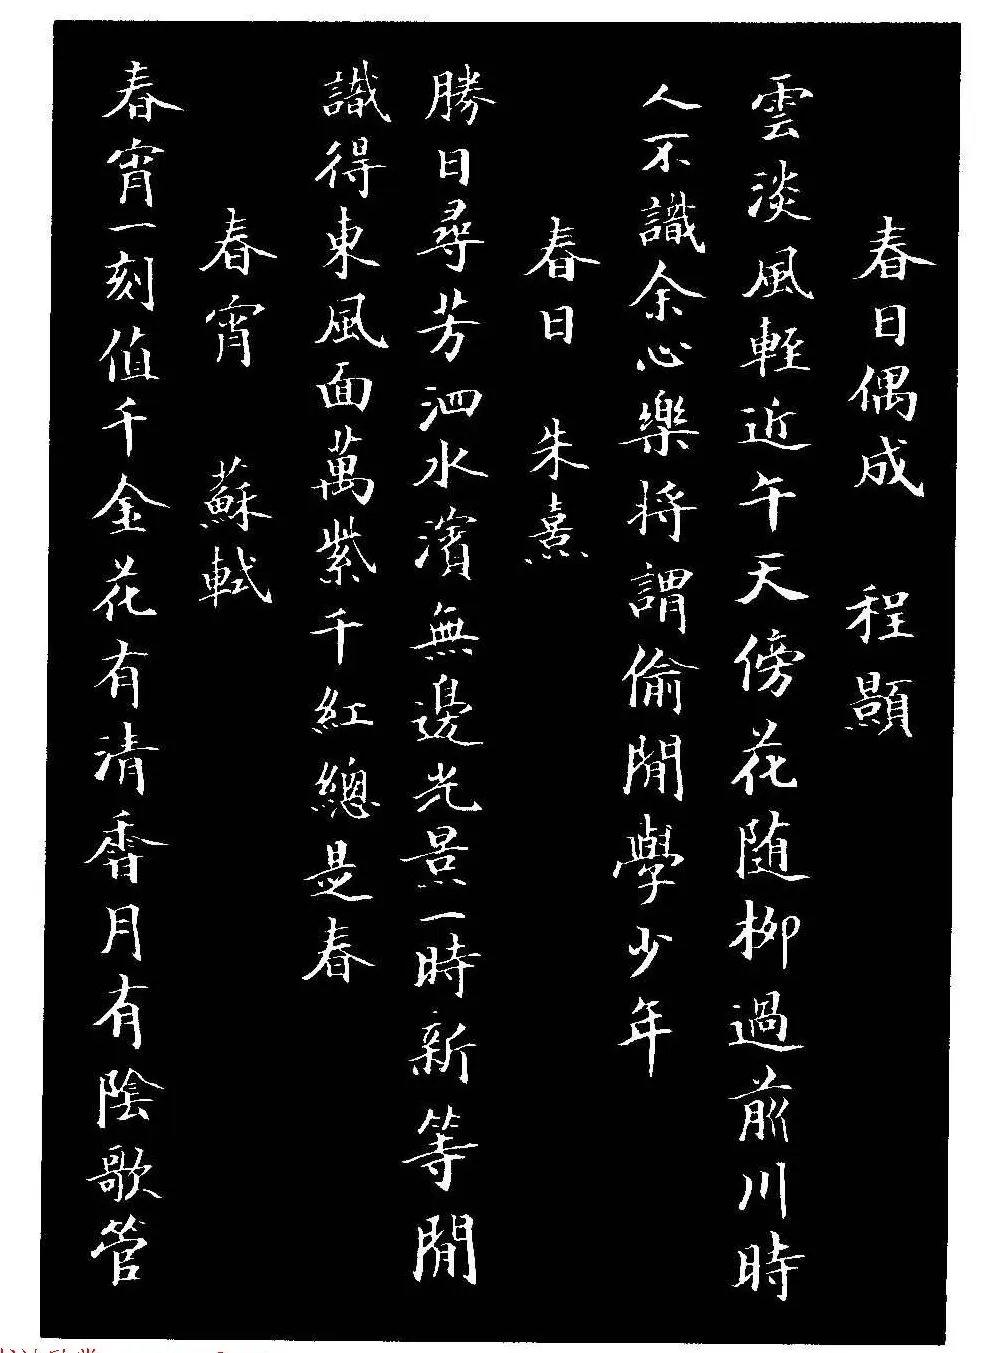 春日偶成 程顥
雲淡風輕近午天傍花随柳過前川時
人不識余心樂將謂偷閒學少年
春日 朱熹
勝日尋芳泗水濱無邊光景一時新等閒
識得東風面萬紫千紅總是春
春宵 蘇軾
春宵一刻值千金花有清香月有陰歌管